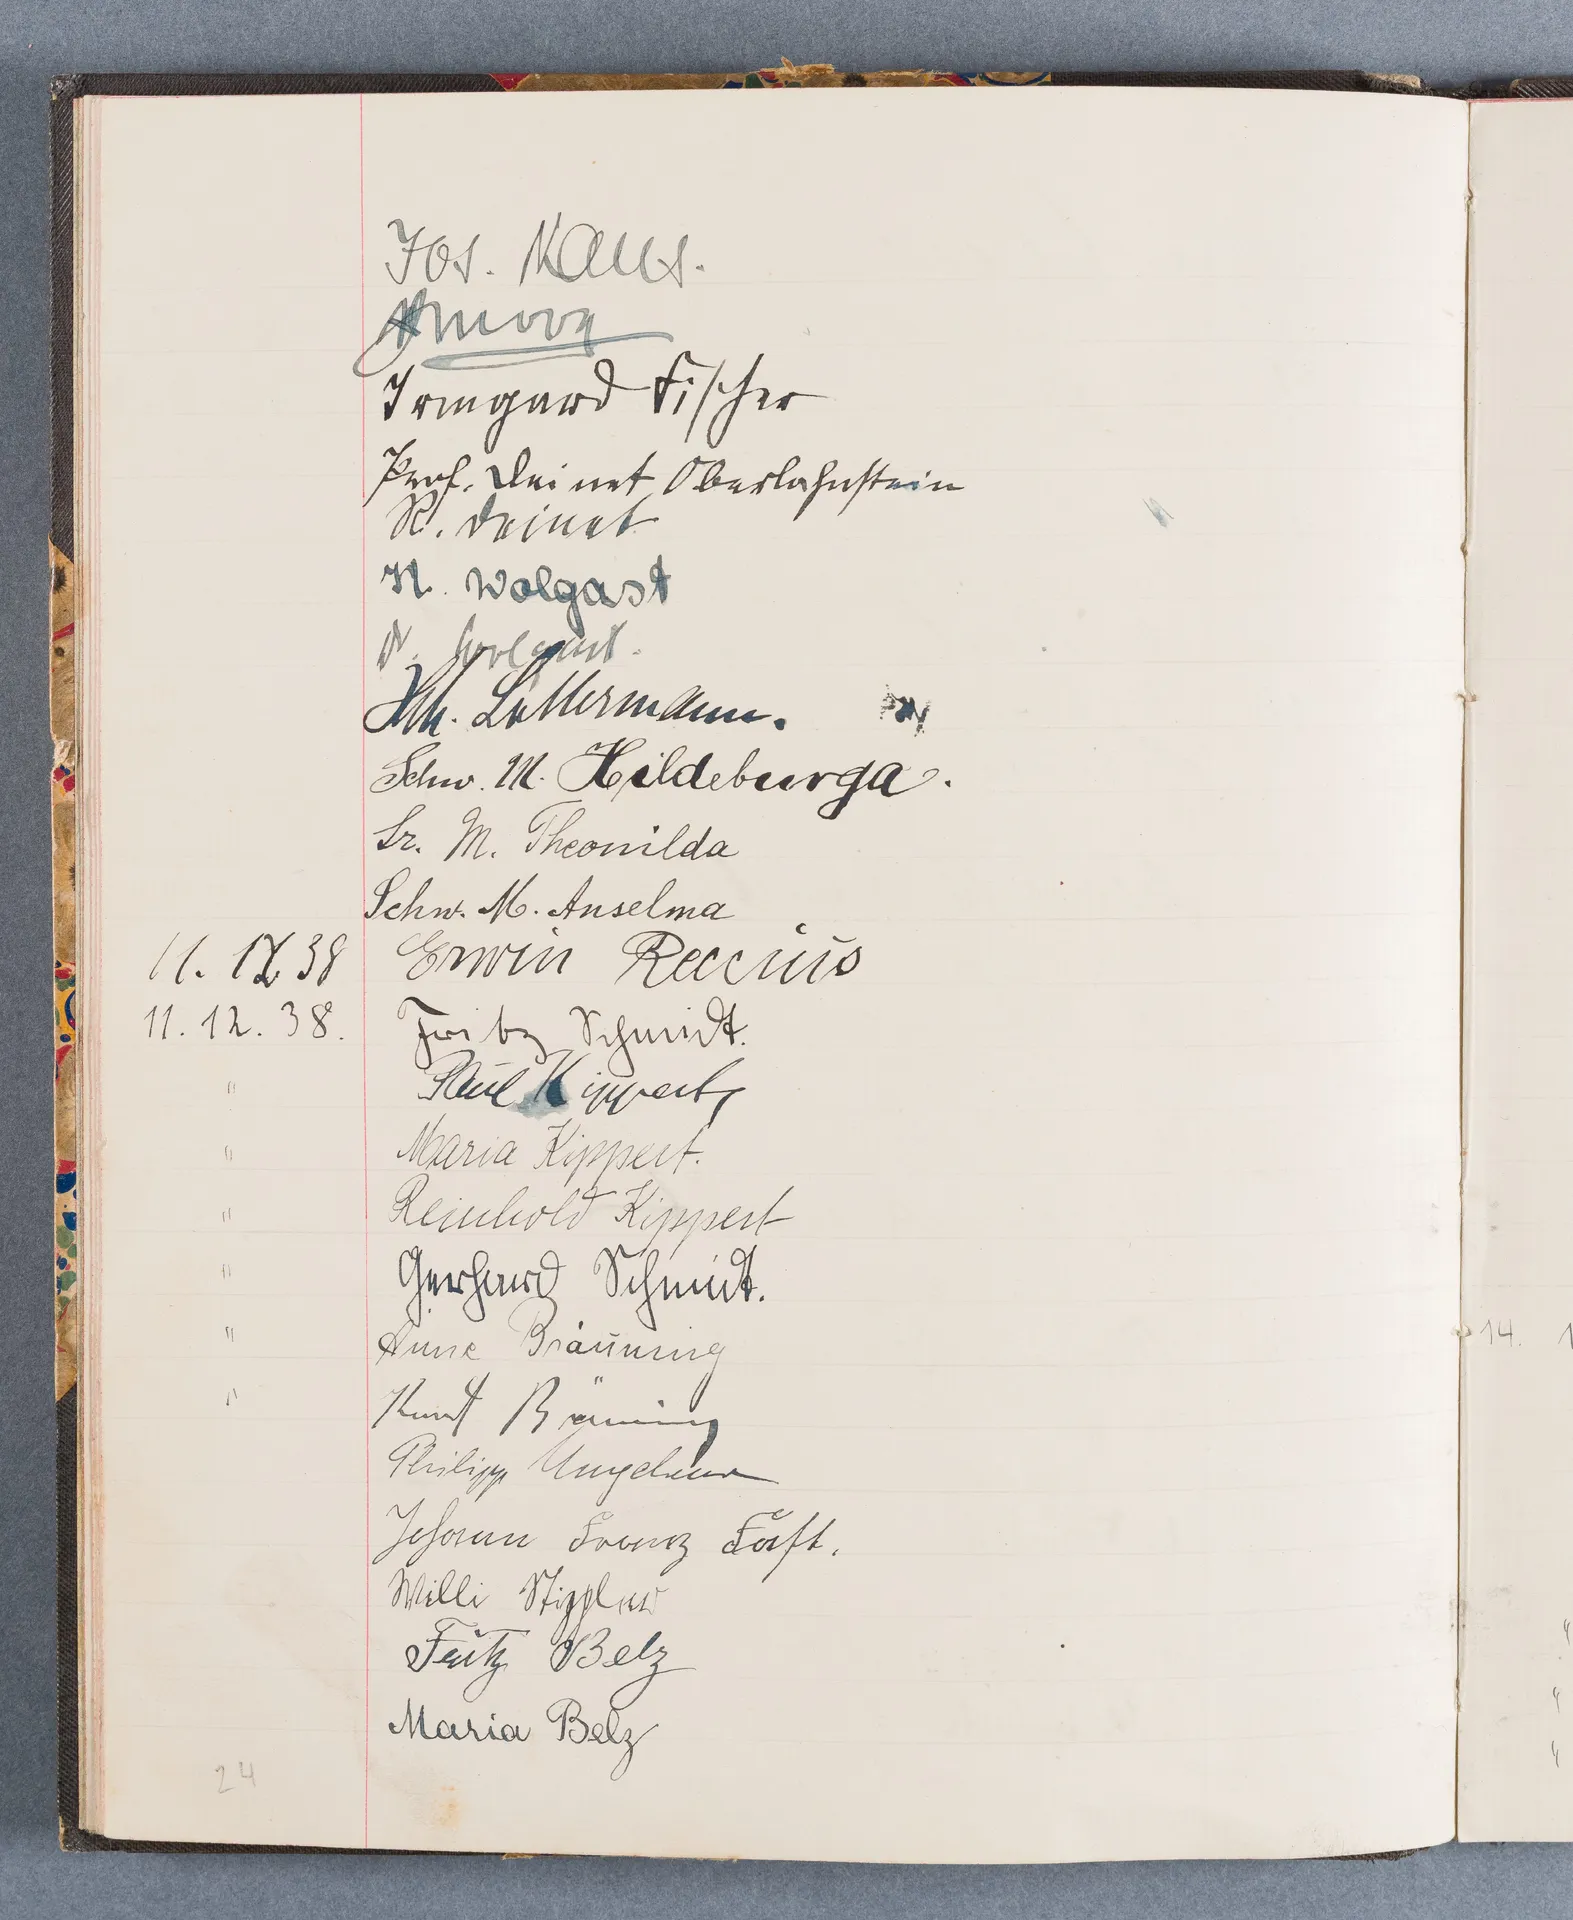 Jos. Kaus.
Irmgard Fischer
Prof. Deinet Oberlahnstein
R. Deinet
H. Wolgast
Lüttermann.
Schw. M. Hildeburga.
Sr. M. Theonilda
Schw. M. Anselma
11. 12 38 Erwin Reccius
11. 12. 38. Fritz Schmidt.
" Paul Kippert,
" Maria Kippert.
" Reinhold Kippert
" Gerhard Schmidt.
" Anne Bräuning
" Kurt Bräuning
Philipp Ungeheuer
Johann Franz
Willi
Fritz Belz
Maria Belz
24
14.
"
"
"